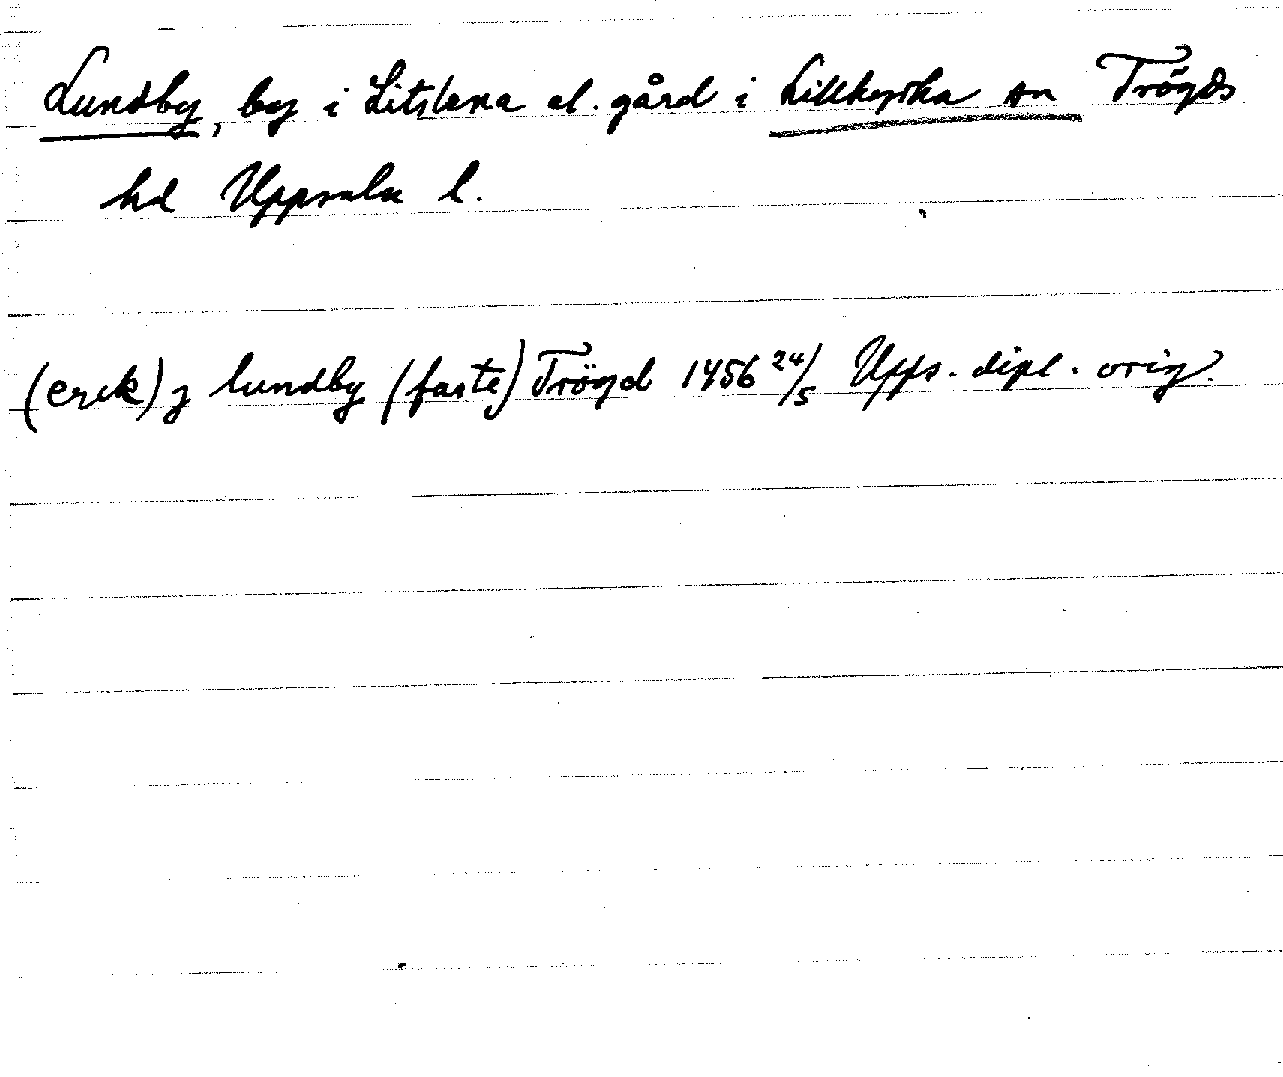 Lundby, by i Litslena el. gård i Lillkyrka sn Trögds
hd Uppsala l.
(erik) j lundby (faste) Trögd 1456 24/5 Upps. dipl. orig.